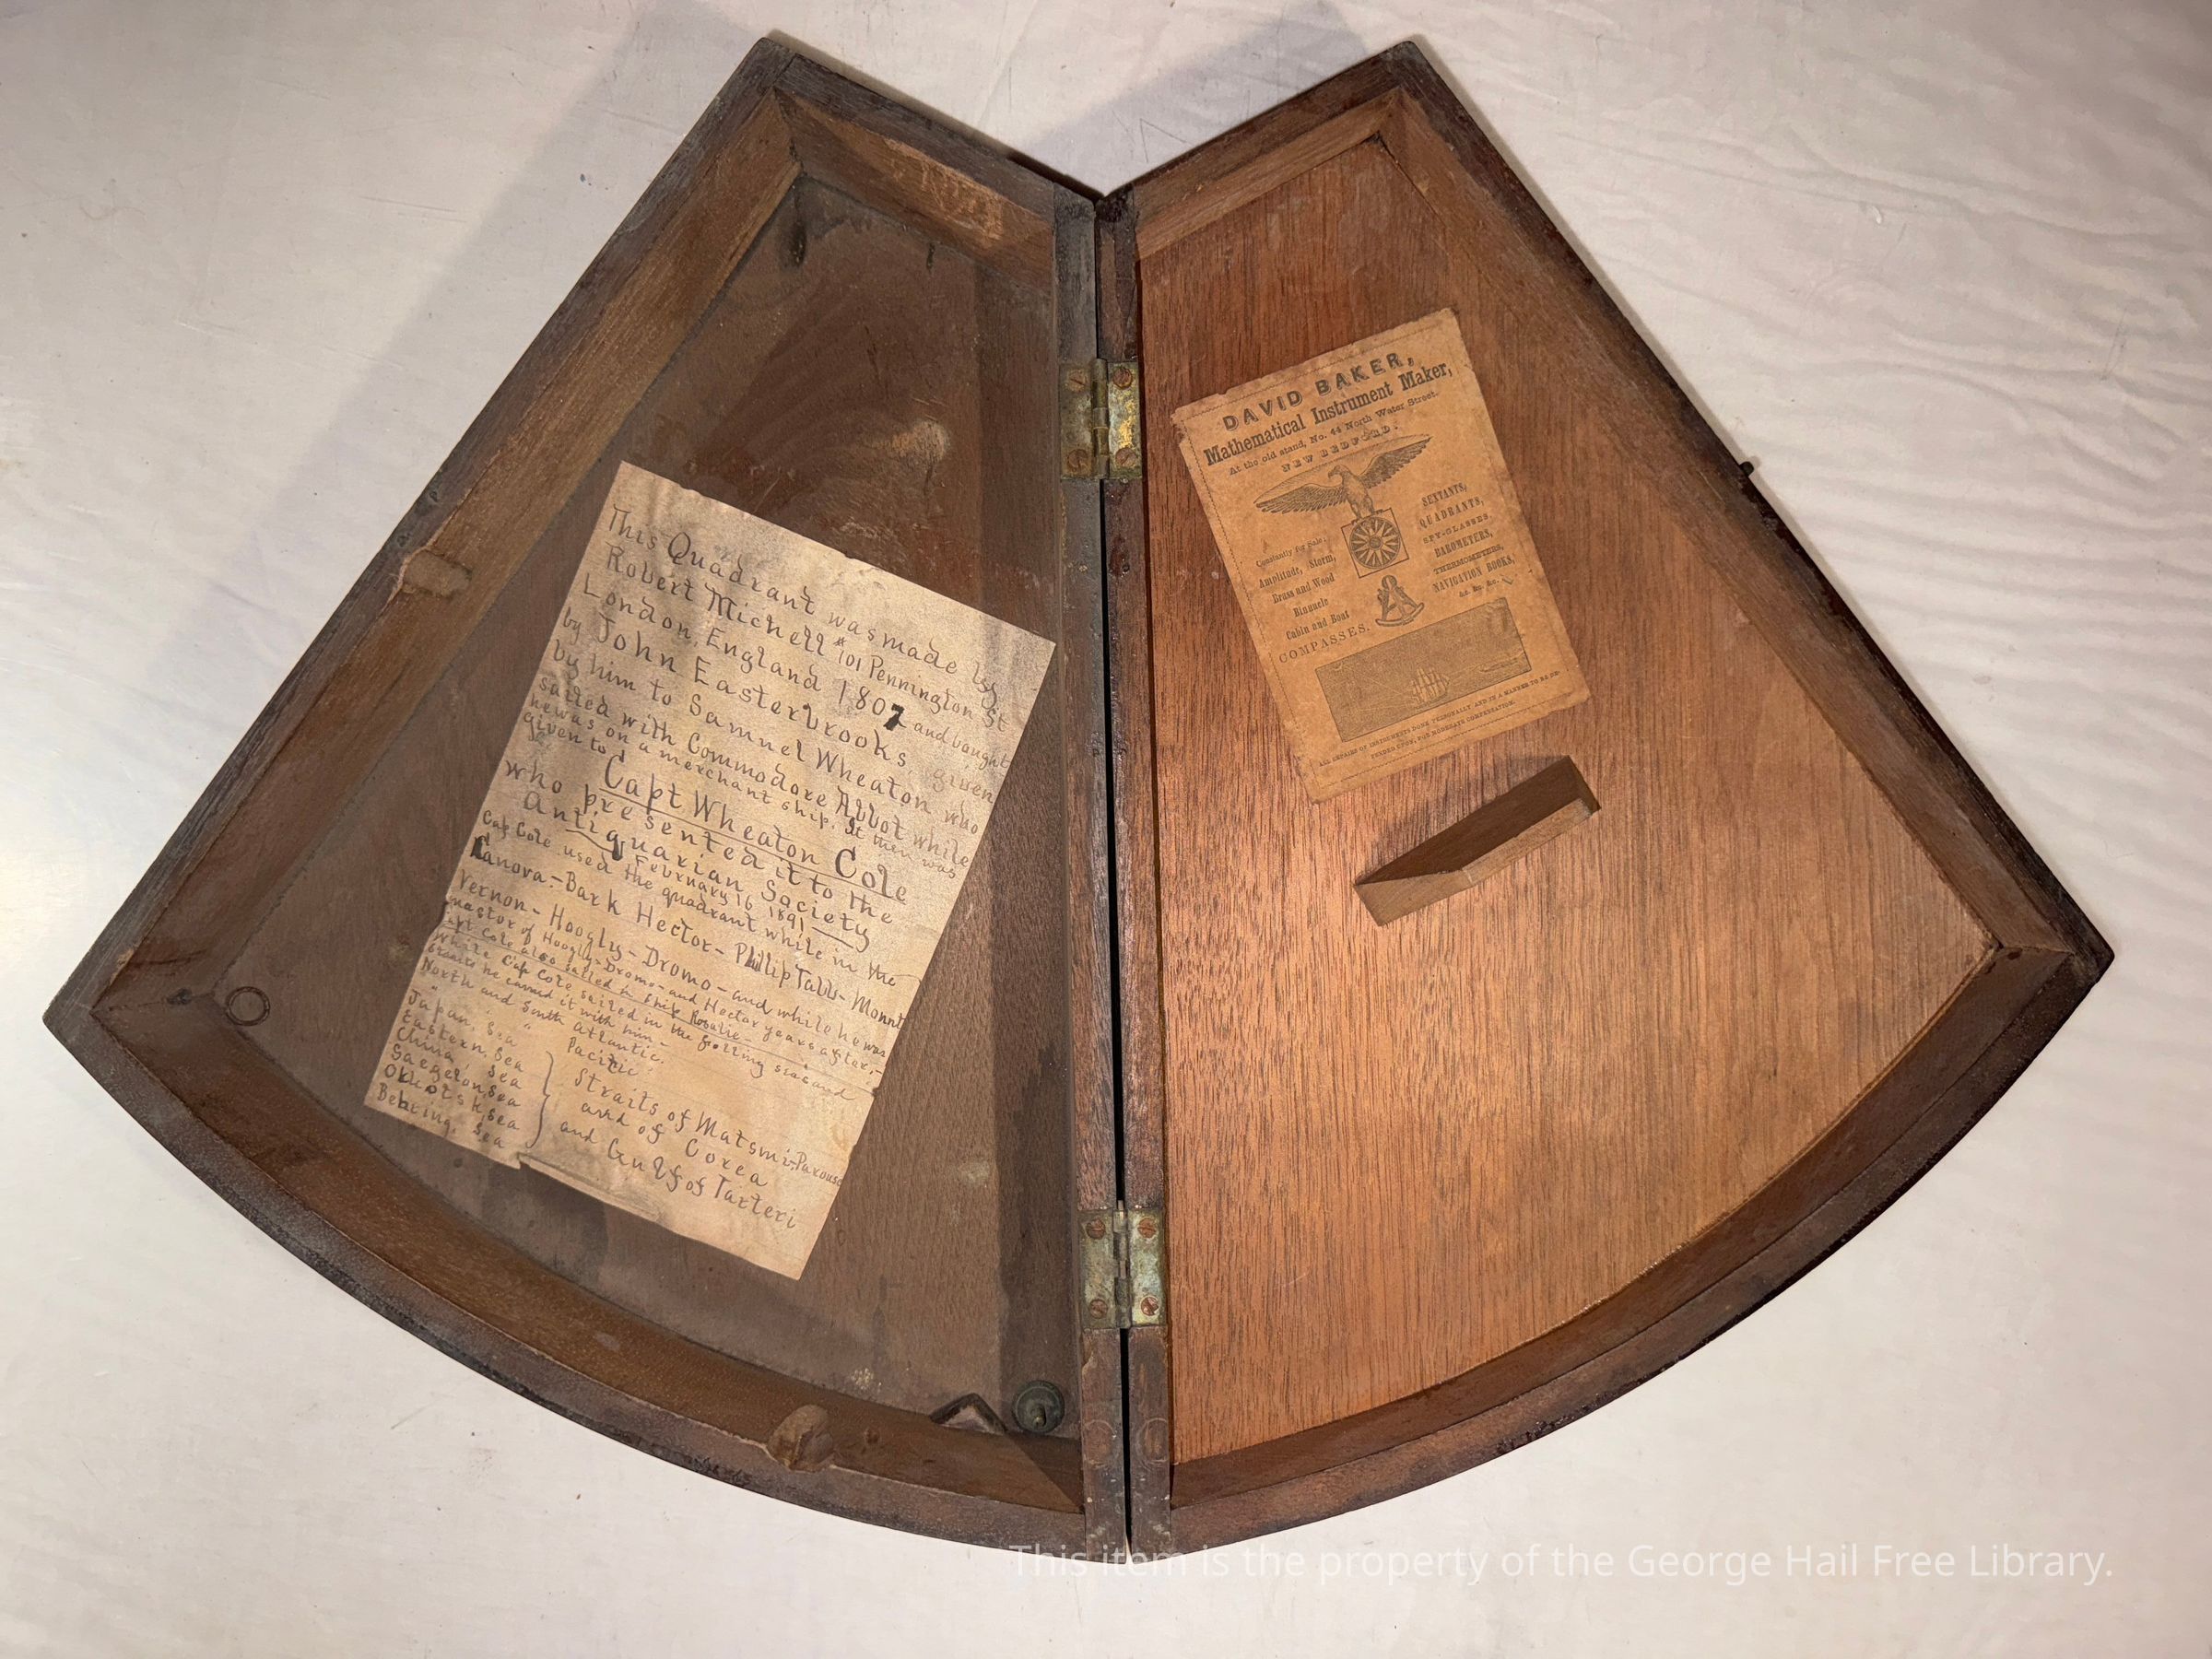 This Quadrant was made by
Robert Michell #101 Pennington St
London, England 1807 and bought
by John Easterbrooks, given
by him to Samuel Wheaton who
sailed with Commodore Abbot while
he was on a merchant ship. It then was
given to
Capt Wheaton Cole
who presented it to the
Antiquarian Society
February 16 1891
Cap Cole used the quadrant while in the
Canova - Bark Hector - Phillip Tabb - Mount
Vernon - Hoogly - Dromo - and while he was
master of Hoogly - Dromo - and Hector years after,-
Capt Cole also sailed in Ship Rosalie -
While Cap Cole sailed in the following seas and
Straits he carried it with him -
North and South Atlantic.
" " " Pacific
Japan, Sea
Eastern, Sea
China, Sea
Sea
Okhotsk, Sea
Behring, Sea
Straits of Matsmi-
and of Corea
and Gulf of Tarteri
DAVID BAKER,
Mathematical Instrument Maker,
At the old stand, No. 44 North Water Street.
NEW BEDFORD.
Constantly for Sale,
Amplitude, Storm,
Brass and Wood
Binnacle
Cabin and Boat
COMPASSES.
SEXTANTS,
QUADRANTS,
SPY-GLASSES
BAROMETERS,
THERMOMETERS,
NAVIGATION BOOKS,
&c. &c. &c.
ALL REPAIRS OF INSTRUMENTS DONE PERSONALLY AND IN A MANNER TO BE DE-
PENDED UPON, FOR MODERATE COMPENSATION.
This item is the property of the George Hail Free Library.